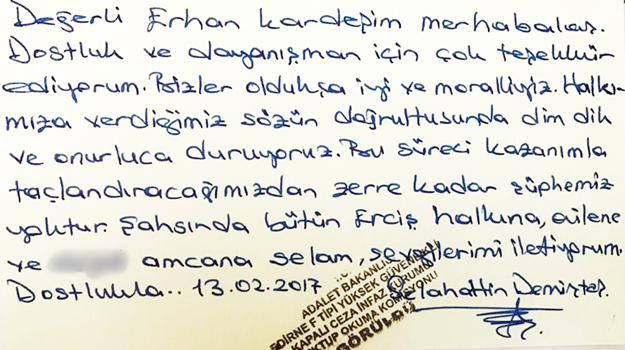 Değerli Erhan kardeşim merhabalar.
Dostluk ve dayanışman için çok teşekkür
ediyorum. Bizler oldukça iyi ve moralliyiz. Halkı-
mıza verdiğimiz sözün doğrultusunda dim dik
ve onurluca duruyoruz. Bu süreci kazanımla
taçlandıracağımızdan zerre kadar şüphemiz
yoktur. Şahsında bütün Erciş halkına, ailene
ve amcana selam, sevgilerimi iletiyorum.
Dostlukla.. 13.02.2017 Selahattin Demirtaş.
ADALET BAKANLIĞI
EDİRNE F TİPİ YÜKSEK GÜVENLİKLİ
KAPALI CEZA İNFAZ KURUMU
MEKTUP OKUMA KOMİSYONU
GÖRÜLDÜ